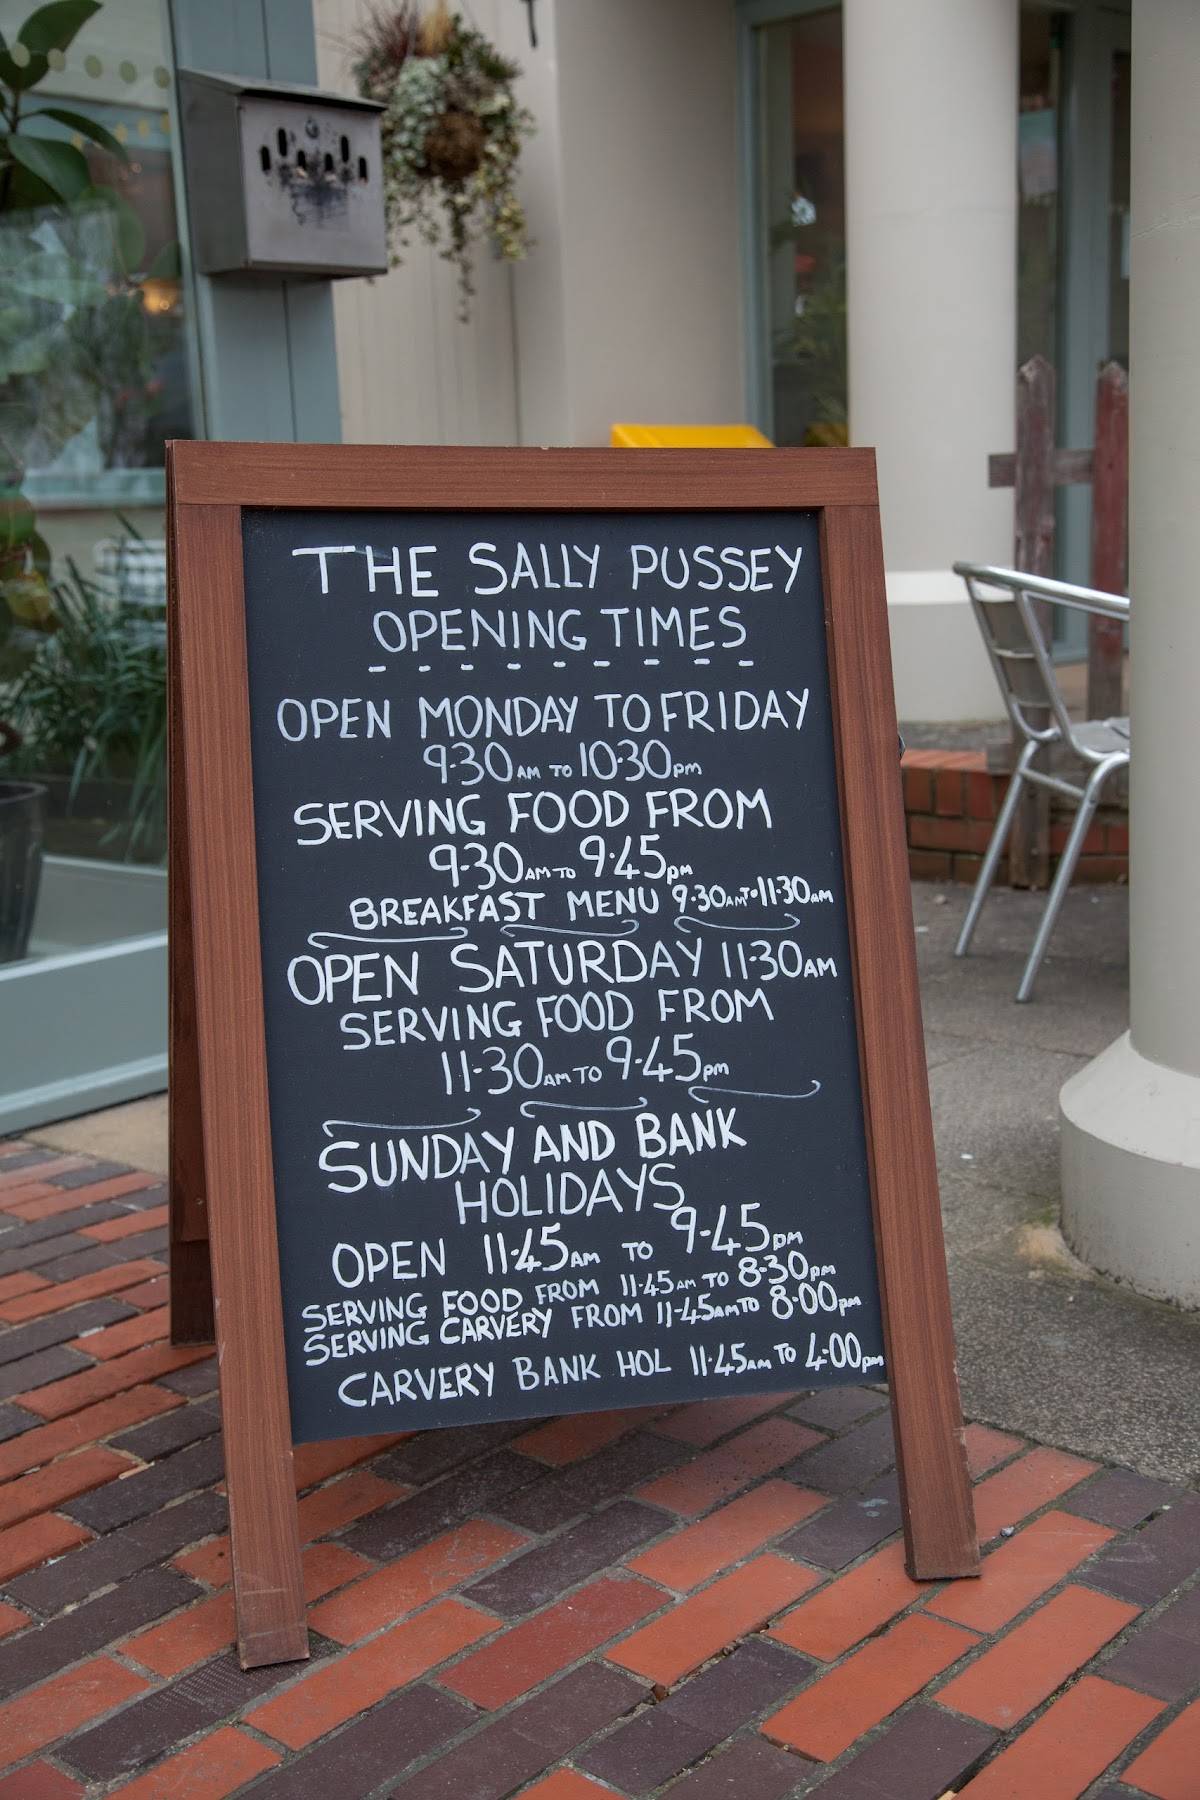 THE SALLY PUSSEY
OPENING TIMES
OPEN MONDAY TO FRIDAY
9·30AM TO 10·30pm
SERVING FOOD FROM
9·30AM TO 9·45pm
BREAKFAST MENU 9·30AM TO 11·30AM
OPEN SATURDAY 11·30AM
SERVING FOOD FROM
11·30AM TO 9·45pm
SUNDAY AND BANK
HOLIDAYS
OPEN 11·45AM TO 9·45pm
SERVING FOOD FROM 11·45AM TO 8·30pm
SERVING CARVERY FROM 11·45AM TO 8·00pm
CARVERY BANK HOL 11·45AM TO 4·00pm